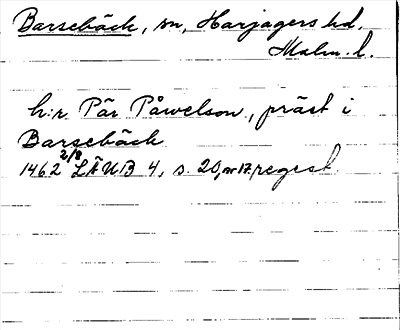 Barsebäck, sn, Harjagers hd.
Malm. l.
h:r Pär Påwelson, präst i
Barsebäck
1462 2/8 LÄUB 4, s. 20, nr 17, regest